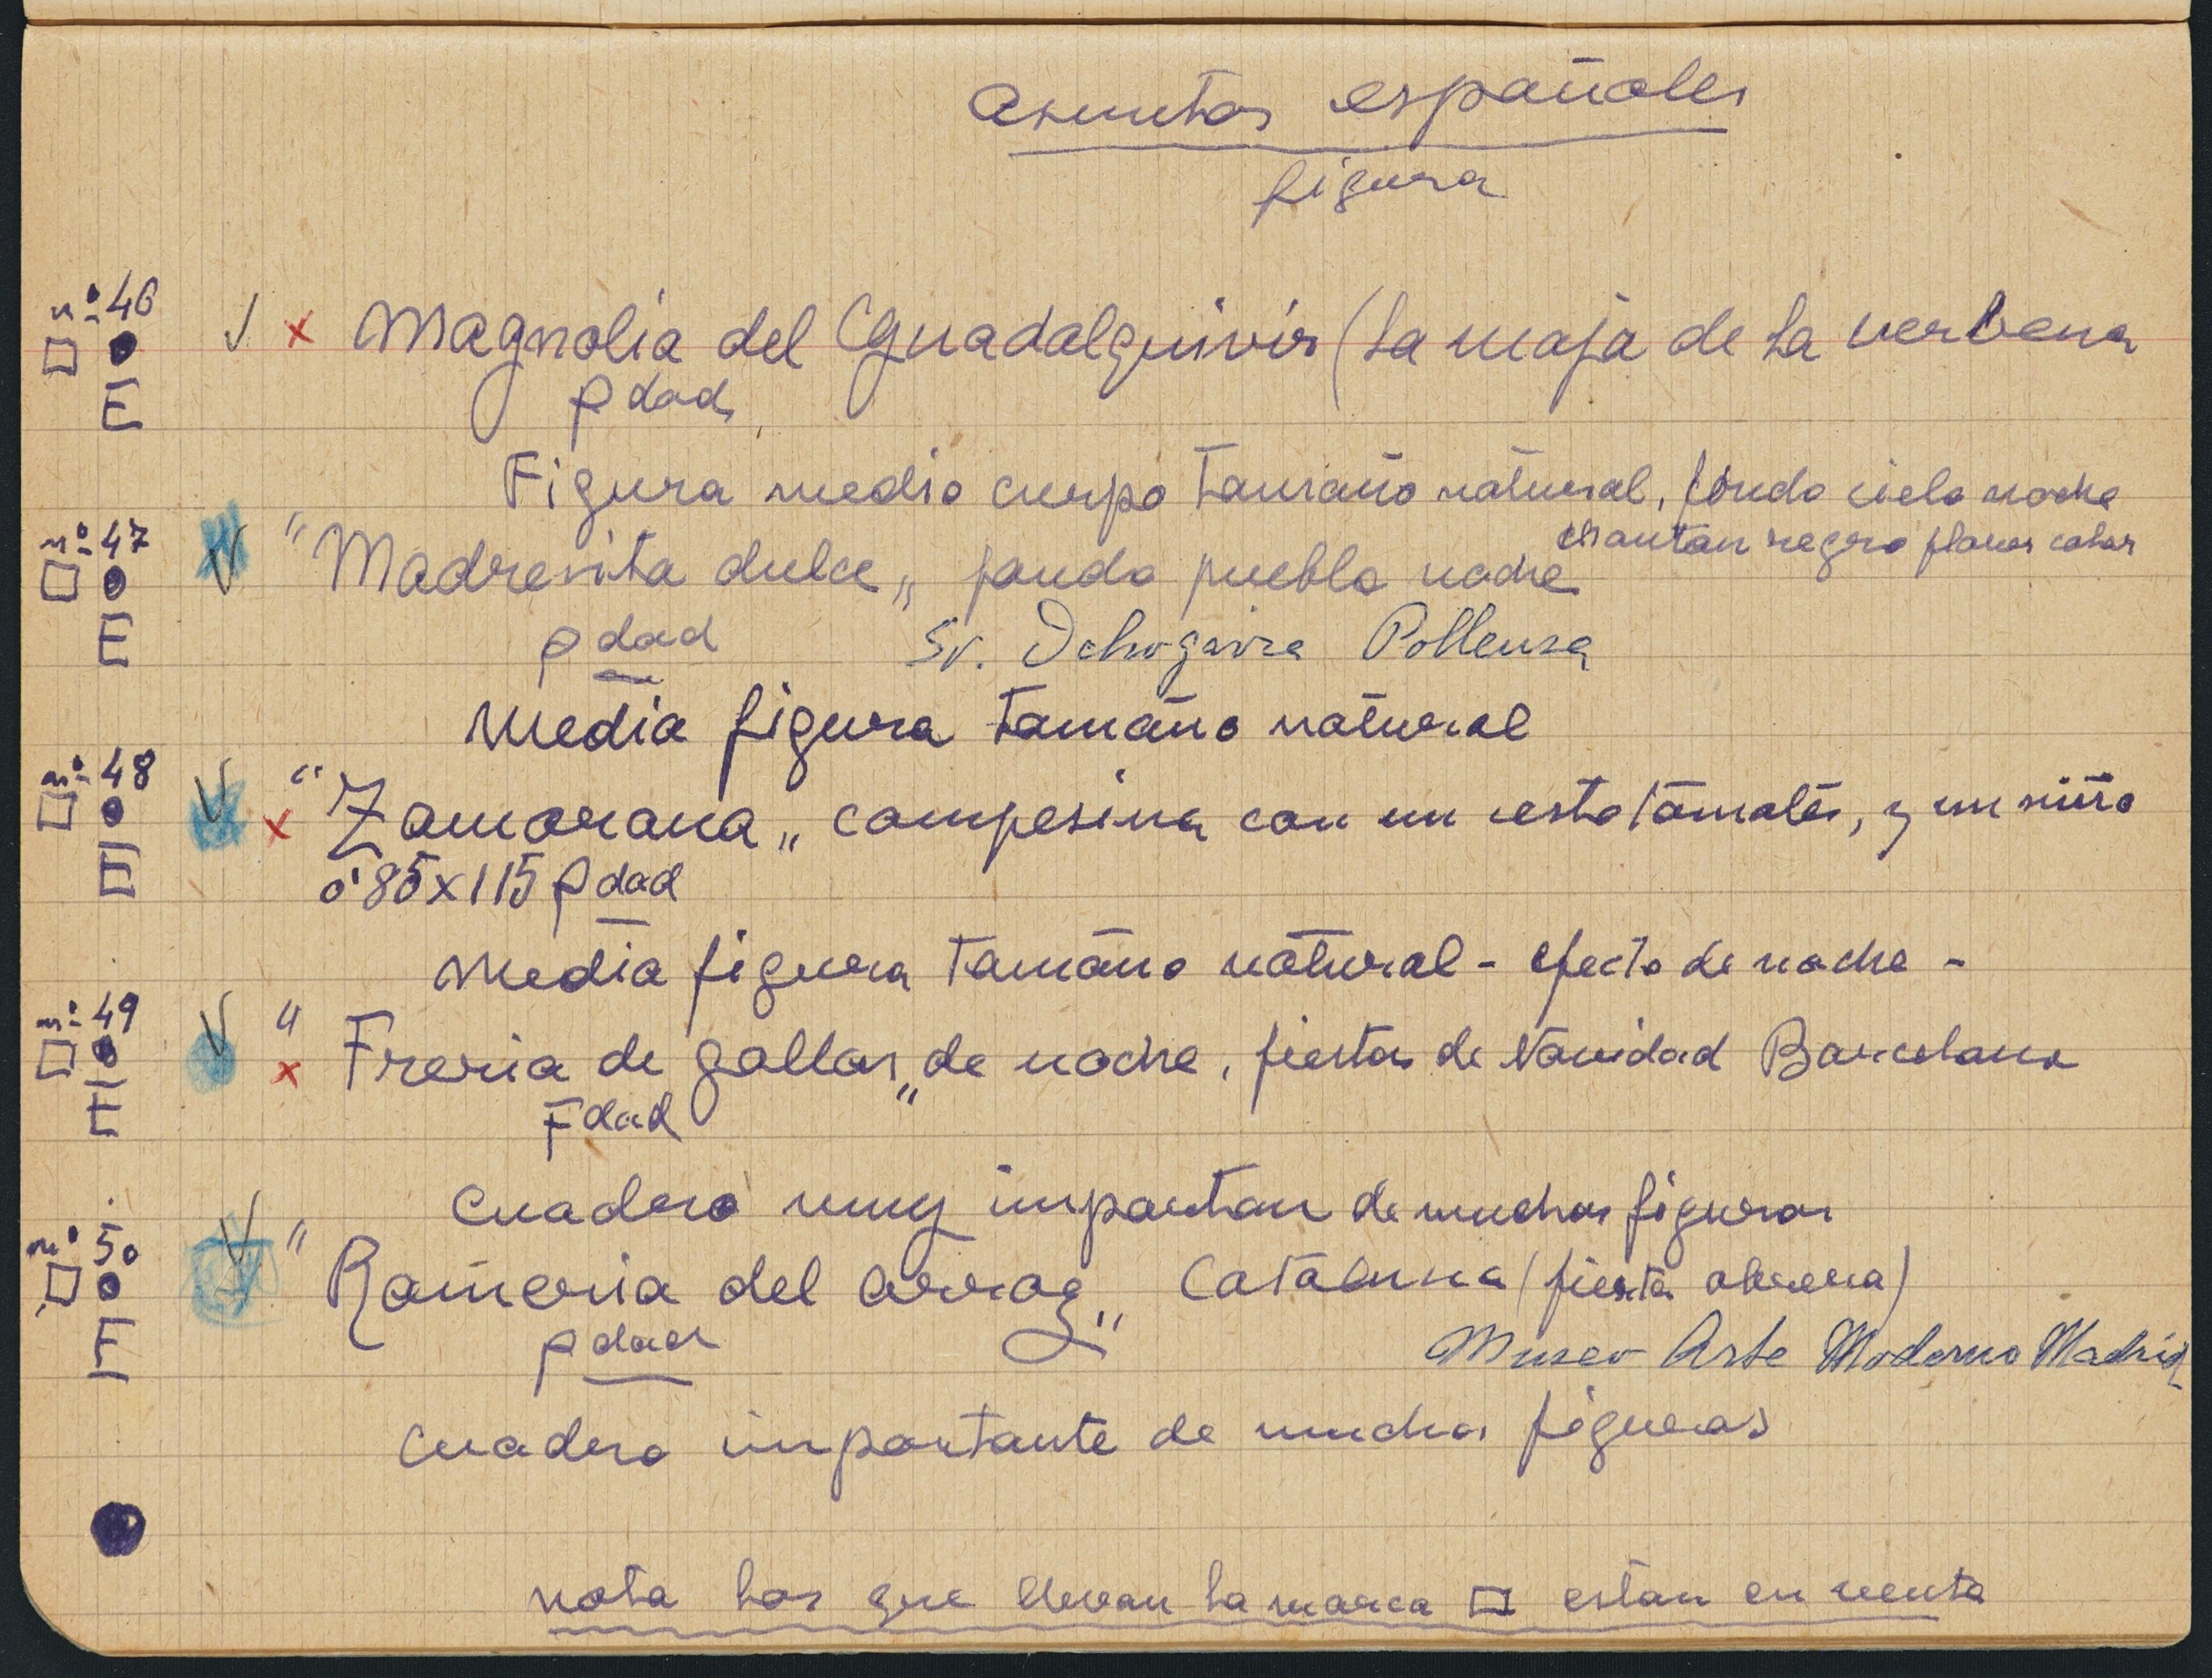 asuntos españoles
figura
nº 46 Magnolia del Guadalquivir (La maja de la verbena
pdad
E
Figura medio cuerpo tamaño natural, fondo cielo noche
mantan negro flores color
nº 47 "Madresita dulce" fondo pueblo noche
E
pdad Sr. Pollensa
media figura tamaño natural
nº 48 "Zamorana" campesina con un cesto tomates, y un niño
E
0'85x115 pdad
media figura tamaño natural - efecto de noche -
nº 49 "Freria de gallos" de noche, fiestas de Navidad Barcelona
E
Fdad
cuadero muy importan de muchas figuras
nº 50 "Romeria del arroz" Cataluna (fiesta obrera)
E
pdad Museo Arte Moderno Madrid
cuadero importante de muchas figueras
nota los que llevan la marca □ estan en venta